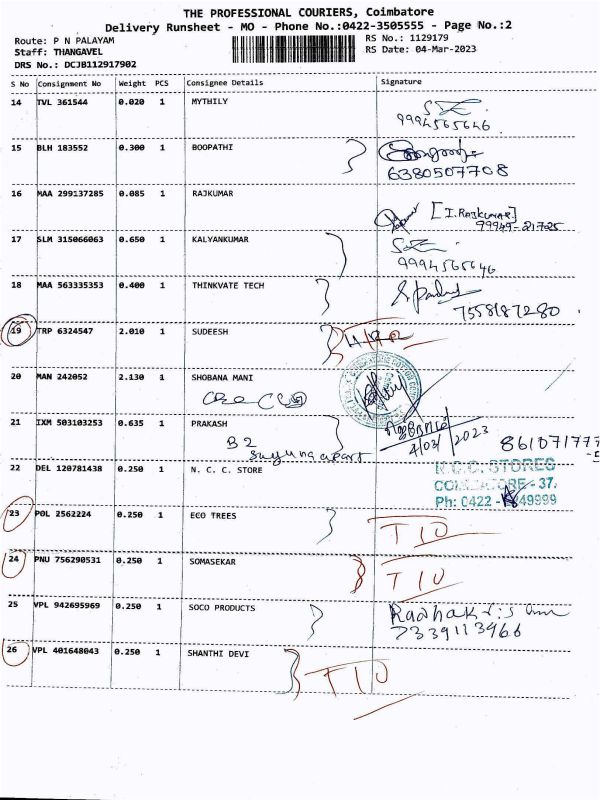 THE PROFESSIONAL COURIERS, Coimbatore
Delivery Runsheet - MO - Phone No.:0422-3505555 - Page No.:2
Route: P N PALAYAM
RS No.: 1129179
Staff: THANGAVEL
RS Date: 04-Mar-2023
DRS No.: DCJB112917902
S No Consignment No Weight PCS Consignee Details Signature
14 TVL 361544 0.020 1 MYTHILY
9994565646
15 BLH 183552 0.300 1 BOOPATHI
6380507708
16 MAA 299137285 0.085 1 RAJKUMAR
[I.RAJKUMAR]
99949-21725
17 SLM 315066063 0.650 1 KALYANKUMAR
9994565646
18 MAA 563335353 0.400 1 THINKVATE TECH
7558187280
19 TRP 6324547 2.010 1 SUDEESH
20 MAN 242052 2.130 1 SHOBANA MANI
21 IXM 503103253 0.635 1 PRAKASH
4/03/2023
B2
861071777
22 DEL 120781438 0.250 1 N. C. C. STORE
N.C.C. STORES
COIMBATORE - 37.
Ph: 0422 - 49999
23 POL 2562224 0.250 1 ECO TREES
T I O
24 PNU 756290531 0.250 1 SOMASEKAR
T I O
25 VPL 942695969 0.250 1 SOCO PRODUCTS
7339113966
26 VPL 401648043 0.250 1 SHANTHI DEVI
T I O